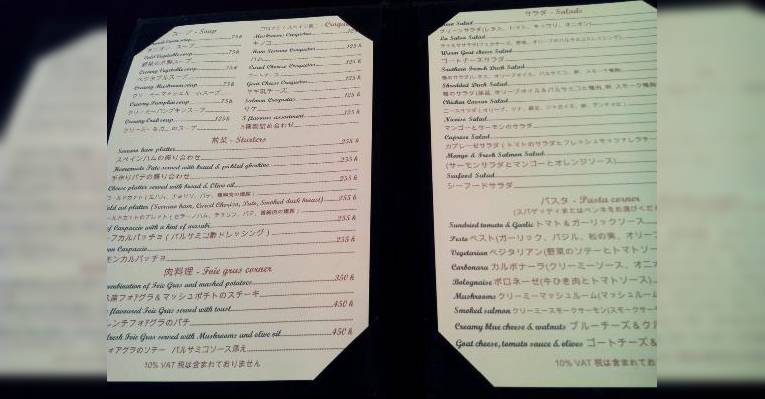 スープ - Soup
75k
オニオン スープ
Cold Vegetable soup 75k
野菜の冷製スープ
Creamy Vegetable soup 75k
ベジタブルスープ
Creamy Mushroom soup 75k
クリーミーマッシュルームスープ
Creamy Pumpkin soup 75k
クリーミーパンプキンスープ
Creamy Crab soup 125k
クリーミーなカニのスープ
Mushrooms Croquetas 125k
キノコ
Ham Serrano Croquetas 125k
ハム
Camel Cheese Croquetas 125k
Goat Cheese Croquetas 125k
ヤギ乳チーズ
Salmon Croquetas 125k
サケ
5 flavours assortment 125k
5種類詰め合わせ
前菜 - Starters
Serrano ham platter 255k
スペインハムの盛り合わせ
Homemade Pate served with bread & pickled gherkins 255k
手作りパテの盛り合わせ
Cheese platter served with bread & Olive oil 255k
old cut platter (Serrano ham, Camel Chorizo, Pate, Smoked duck breast) 255k
of Carpaccio with a hint of wasabi 255k
フカルパッチョ ( バルサミコ酢ドレッシング )
on Carpaccio 255k
モンカルパッチョ
肉料理 - Foie gras corner
ombination of Foie Gras and mashed potatoes 350k
フォアグラ&マッシュポテトのステーキ
flavoured Foie Gras served with toast 450k
レンチフォアグラのパテ
Fresh Foie Gras served with Mushrooms and olive oil 450k
ォアグラのソテー バルサミコソース添え
10% VAT 税は含まれておりません
サラダ - Salads
グリーンサラダ(レタス、トマト、キュウリ、オニオン)
La Salsa Salad
Warm Goat cheese Salad
ゴートチーズサラダ
Southern French Duck Salad
Shredded Duck Salad
Chicken Caesar Salad
Nicoise Salad
マンゴーとサーモンのサラダ
Caprese Salad
カプレーゼサラダ(トマトのサラダとフレッシュモッツァレラチー
Mango & Fresh Salmon Salad
(サーモンサラダとマンゴーとオレンジソース)
Seafood Salad
シーフードサラダ
パスタ - Pasta corner
(スパゲッティまたはペンネをお選びくだ
Sundried tomato & Garlic トマト&ガーリックソース
Pesto ペスト(ガーリック、バジル、松の実、オリーブ
Vegetarian ベジタリアン(野菜のソテーとトマトソー
Carbonara カルボナーラ(クリーミーソース、オニオ
Bolognaise ボロネーゼ(牛ひき肉とトマトソース)
Mushrooms クリーミーマッシュルーム(マッシュルーム
Smoked salmon クリーミースモークサーモン(スモークサー
Creamy blue cheese & walnuts ブルーチーズ&クル
Goat cheese, tomato sauce & olives ゴートチーズ&
10% VAT 税は含まれてお